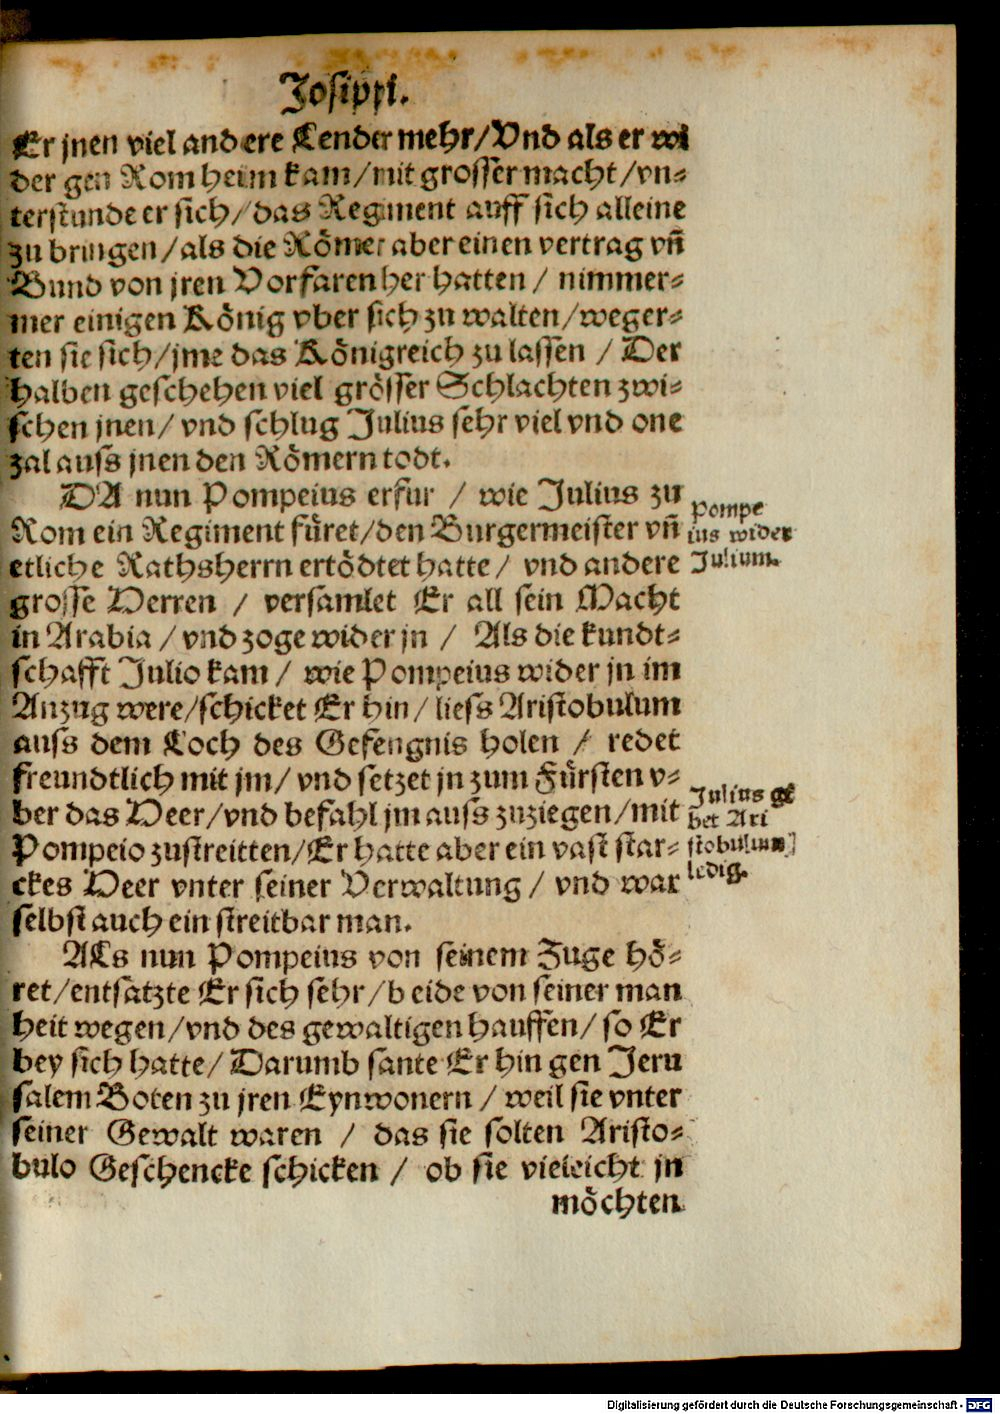 Josippi.
Er jnen viel andere Lender mehr/Vnd als er wi
der gen Rom heim kam/mit grosser macht/vn-
terstunde er sich/das Regiment auff sich alleine
zu bringen/als die Römer aber einen vertrag vñ
Bund von jren Vorfaren her hatten / nimmer-
mer einigen König vber sich zu walten/weger-
ten sie sich/jme das Königreich zu lassen / Der
halben geschehen viel grösser Schlachten zwi-
schen jnen/ vnd schlug Julius sehr viel vnd one
zal auss jnen den Römern todt.
DA nun Pompeius erfur / wie Julius zu
Rom ein Regiment füret/den Burgermeister vñ
etliche Rathsherrn ertödtet hatte/ vnd andere
grosse Herren / versamlet Er all sein Macht
in Arabia /vnd zoge wider jn / Als die kundt-
schafft Julio kam/ wie Pompeius wider jn im
Anzug were/schicket Er hin/ liess Aristobulum
auss dem Loch des Gefengnis holen / redet
freundtlich mit jm/ vnd setzet jn zum Fürsten v-
ber das Heer/vnd befahl jm auss zuziegen/mit
Pompeio zustreitten/Er hatte aber ein vast star-
ckes Heer vnter seiner Verwaltung/ vnd war
selbst auch ein streitbar man.
ALs nun Pompeius von seinem Zuge hö-
ret/entsatzte Er sich sehr/beide von seiner man
heit wegen/vnd des gewaltigen hauffen/ so Er
bey sich hatte/ Darumb sante Er hin gen Jeru
salem Boten zu jren Eynwonern / weil sie vnter
seiner Gewalt waren / das sie solten Aristo-
bulo Geschencke schicken / ob sie vieleicht jn
möchten
Pompe
ius wider
Julium.
Julius ge
bet Ari
stobulum
ledig.
Digitalisierung gefördert durch die Deutsche Forschungsgemeinschaft - DFG